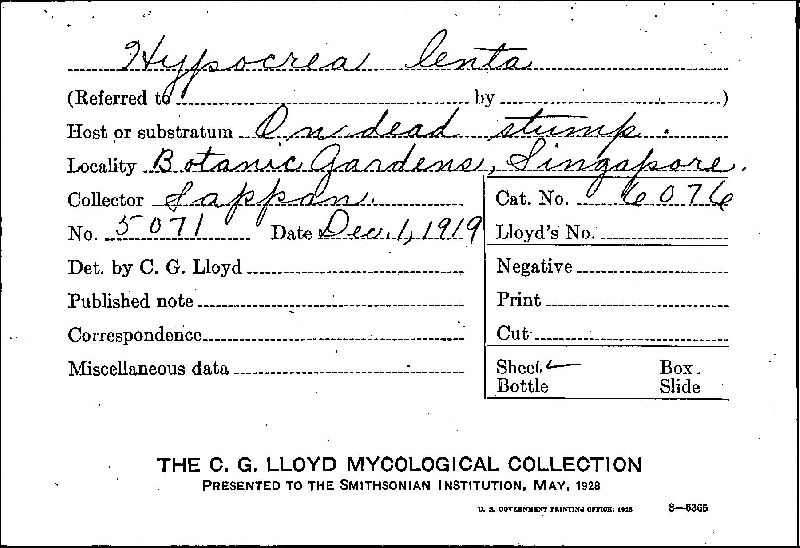 Hypocrea lenta
(Referred to by )
Host or substratum On dead stump.
Locality Botanic Gardens, Singapore.
Collector Sappan.
Cat. No. 6076
No. 5071 Date Dec. 1, 1919
Lloyd's No.
Det. by C. G. Lloyd
Negative
Published note
Print
Correspondence
Cut
Miscellaneous data
Sheet Box
Bottle Slide
THE C. G. LLOYD MYCOLOGICAL COLLECTION
PRESENTED TO THE SMITHSONIAN INSTITUTION, MAY, 1928
U. S. GOVERNMENT PRINTING OFFICE: 1928 8—6365